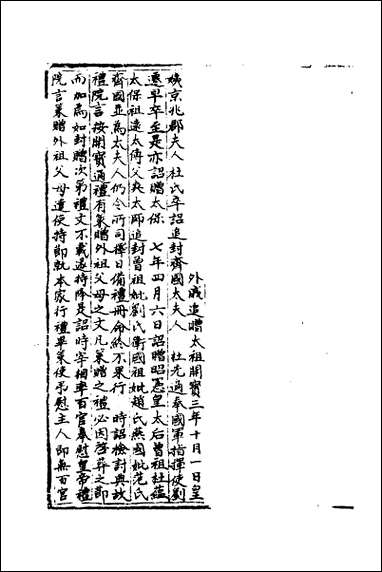 外戚追贈太祖開寶三年十月一日皇
姨京兆郡夫人杜氏卒詔追封齊國太夫人 杜先適奉國軍指揮使劉
遷早卒至是亦詔贈太保 七年四月六日詔贈昭憲皇太后曾祖杜蘊
太保祖遠太傅父爽太師追封曾祖妣劉氏衛國祖妣趙氏燕國妣范氏
齊國並為太夫人仍令所司擇日備禮冊命終不果行 時詔檢討典故
禮院言按開寶通禮有策贈外祖父母之文凡策贈之禮必因啓葬之節
而加焉如封贈次第禮文不載遂特降是詔時宰相率百官奉慰皇帝禮
院言策贈外祖父母遣使持節就本家行禮畢策使吊慰主人即無百官